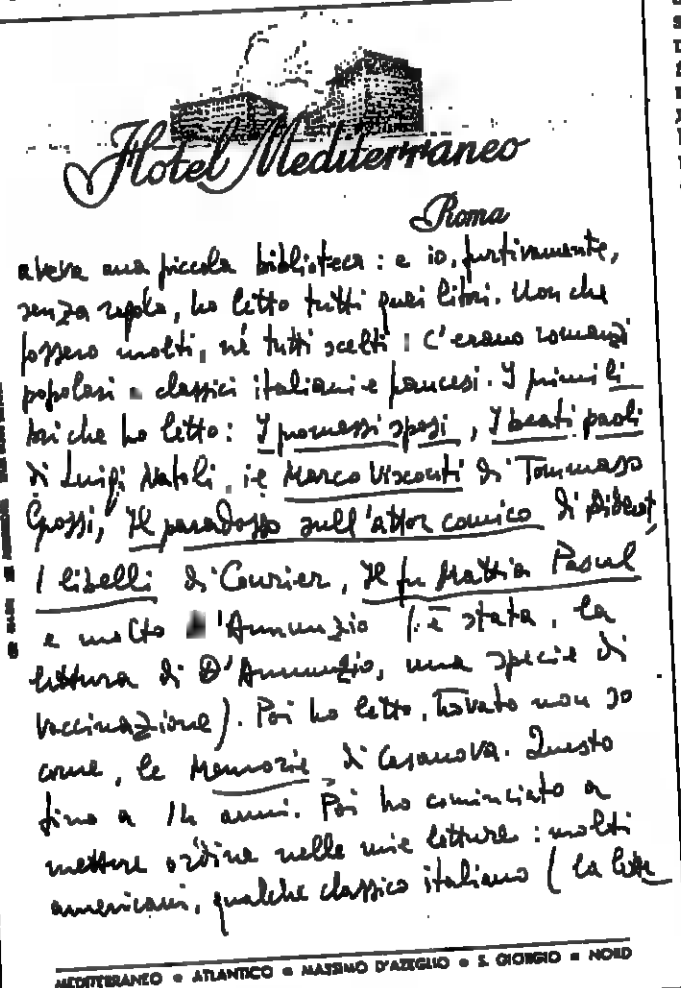 Hotel Mediterraneo
Roma
aveva una piccola biblioteca: e io, furtivamente,
senza regola, ho letto tutti quei libri. Non che
fossero molti, né tutti scelti: c'erano romanzi
popolari e classici italiani e francesi. I primi li
bri che ho letto: I promessi sposi, I beati paoli
di Luigi Natoli, il Marco Visconti di Tommaso
Grossi, Il paradosso sull'attor comico di Diderot,
I libelli di Courier, Il fu Mattia Pascal
e molto D'Annunzio (è stata, la
lettura di D'Annunzio, una specie di
vaccinazione). Poi ho letto, trovato non so
come, le Memorie di Casanova. Questo
fino a 14 anni. Poi ho cominciato a
mettere ordine nelle mie letture: molti
americani, qualche classico italiano (la lette
MEDITERRANEO • ATLANTICO • MASSIMO D'AZEGLIO • S. GIORGIO • NORD